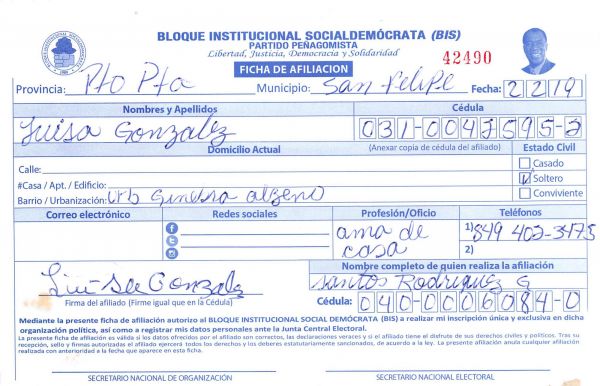 BLOQUE INSTITUCIONAL SOCIALDEMÓCRATA (BIS)
PARTIDO PEÑAGOMISTA
Libertad, Justicia, Democracia y Solidaridad
42490
FICHA DE AFILIACION
Provincia: Pto Pta Municipio: San Felipe Fecha: 2 2 19
Nombres y Apellidos Cédula
Luisa Gonzalez 031-0047595-2
Domicilio Actual (Anexar copia de cédula del afiliado) Estado Civil
Calle: Casado
#Casa / Apt. / Edificio: Soltero
Barrio / Urbanización: Urb Ginebra Conviviente
Correo electrónico Redes sociales Profesión/Oficio Teléfonos
ama de 1) 849 402-3475
casa 2)
Nombre completo de quien realiza la afiliación
Gonzalez Santos Rodriguez G
Firma del afiliado (Firme igual que en la Cédula) Cédula: 040-0006084-0
Mediante la presente ficha de afiliación autorizo al BLOQUE INSTITUCIONAL SOCIALDEMÓCRATA (BIS) a realizar mi inscripción única y exclusiva en dicha
organización política, así como a registrar mis datos personales ante la Junta Central Electoral.
La presente ficha de afiliación es válida si los datos ofrecidos por el afiliado son correctos, las declaraciones veraces y si el afiliado tiene el disfrute de sus derechos civiles y políticos. Tras su
recepción, sello y firmas autorizadas el afiliado ejercerá todos los derechos y los deberes estatutariamente sancionados, de acuerdo a la ley. La presente afiliación anula cualquier afiliación
realizada con anterioridad a la fecha que aparece en esta ficha.
SECRETARIO NACIONAL DE ORGANIZACIÓN SECRETARIO NACIONAL ELECTORAL